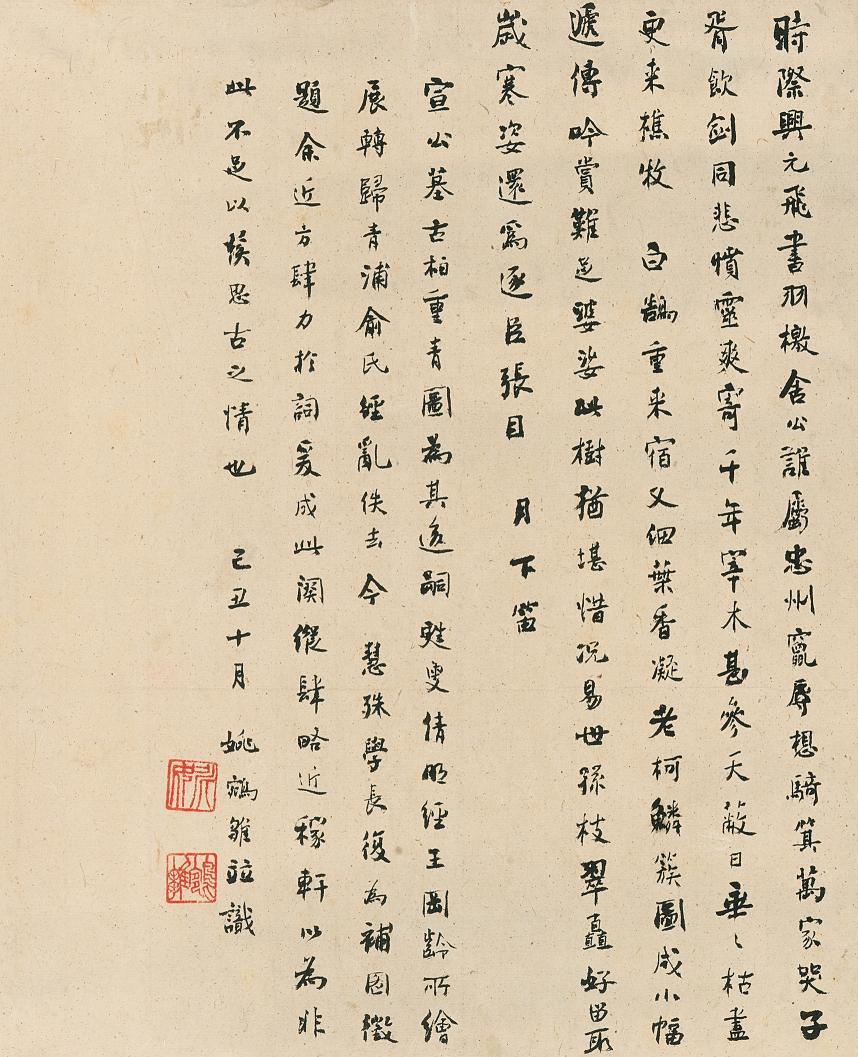 時際興元飛書羽檄舍公誰屬忠州竄辱想騎箕萬家哭子
胥飲劍同悲憤靈爽寄千年宰木甚參天蔽日垂〻枯盡
更来樵牧 白鵲重来宿又細葉香凝老柯鱗簇圖成小幅
遞傳吟賞難足婆娑此樹猶堪惜況易世孫枝翠矗好留取
歲寒姿還為逐臣張目 月下笛
宣公墓古柏重青圖為其遠嗣甦叟倩明經王岡齡所繪
展轉歸青浦俞氏經亂佚去今 慧殊學長復為補圖徵
題余近方肆力於詞爰成此闋縱肆略近稼軒以為非
此不足以發思古之情也 己丑十月 姚鵷雛竝識